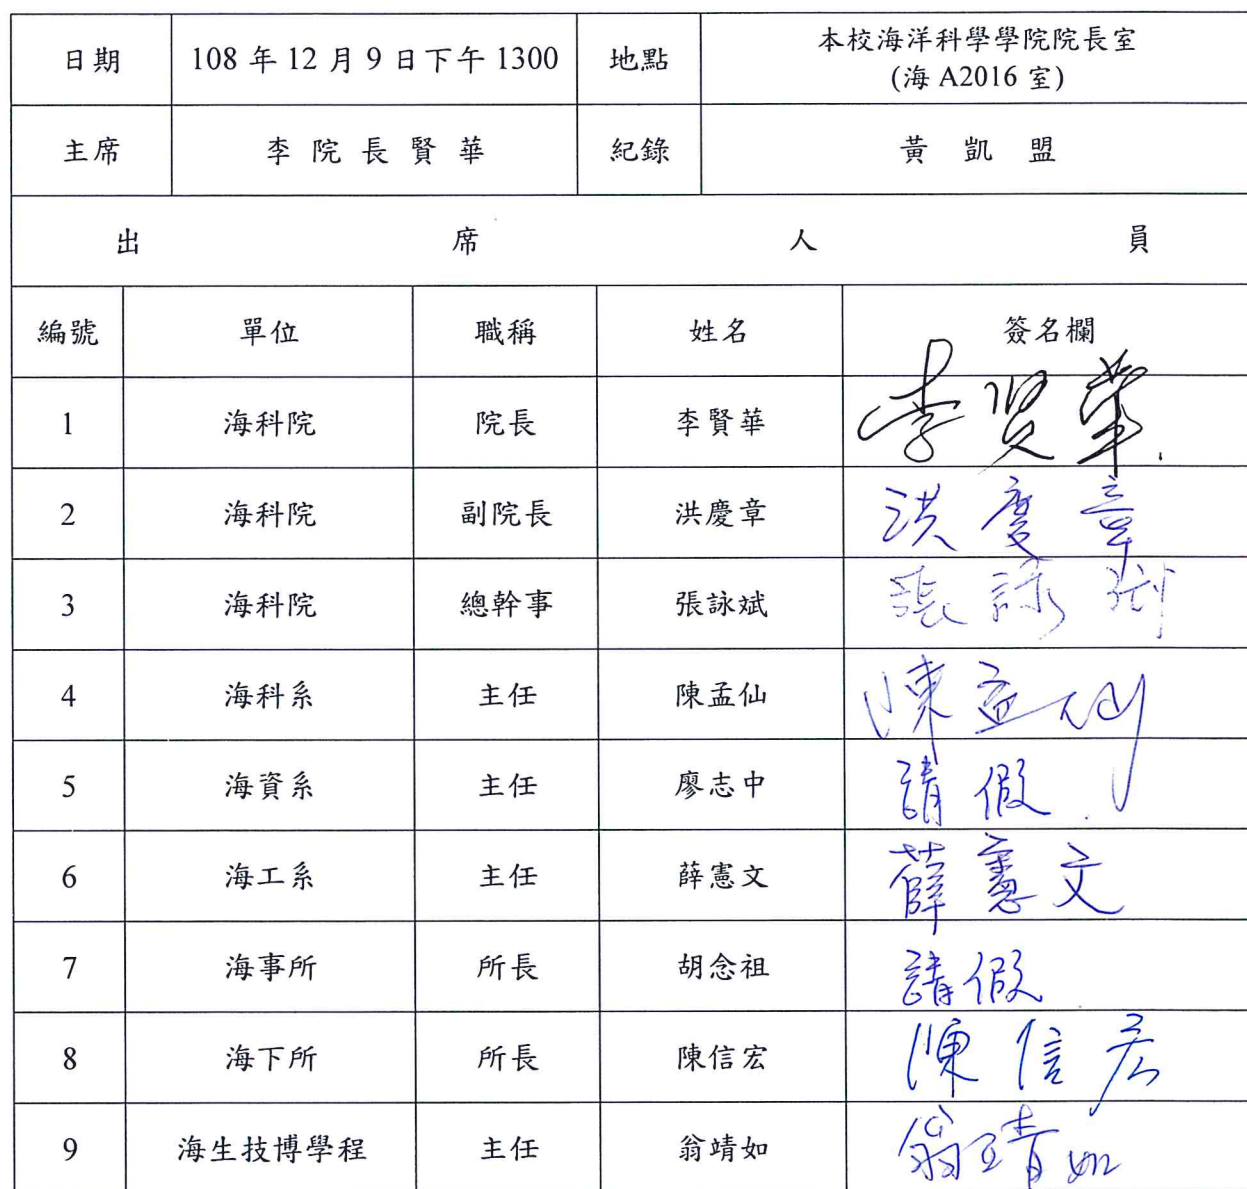 日期 108 年 12 月 9 日下午 1300 地點 本校海洋科學學院院長室
(海 A2016 室)
主席 李院長賢華 紀錄 黃凱盟
出席人員
編號 單位 職稱 姓名 簽名欄
1 海科院 院長 李賢華 李贤華
2 海科院 副院長 洪慶章 洪慶章
3 海科院 總幹事 張詠斌 張詠斌
4 海科系 主任 陳孟仙 陳孟仙
5 海資系 主任 廖志中 請假
6 海工系 主任 薛憲文 薛憲文
7 海事所 所長 胡念祖 請假
8 海下所 所長 陳信宏 陳信宏
9 海生技博學程 主任 翁靖如 翁靖如